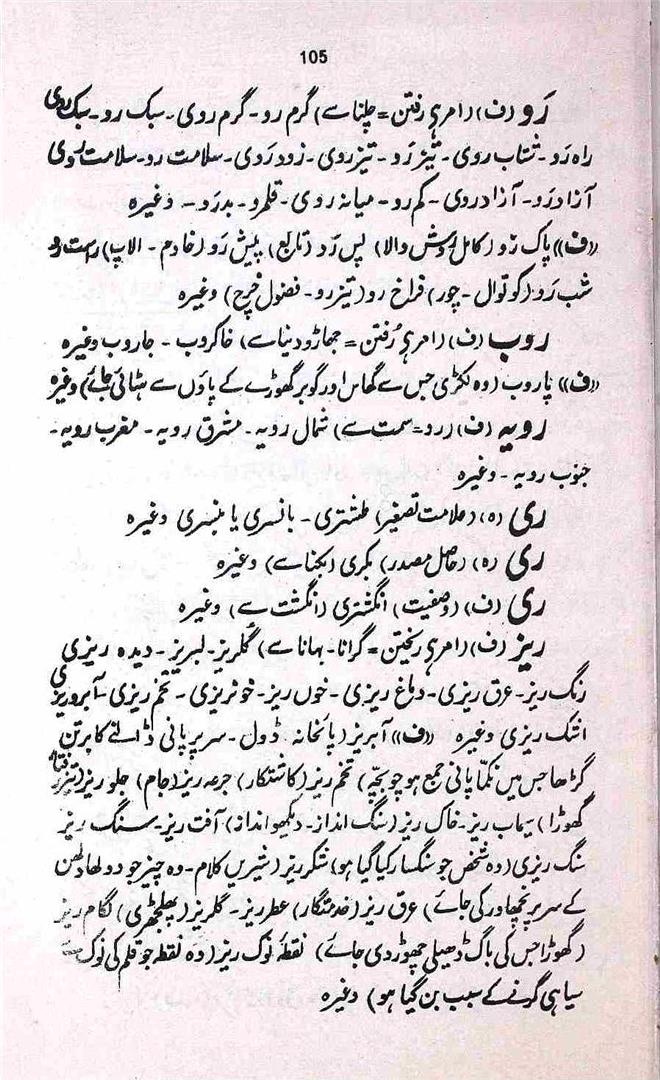 105
رَو (ف) (امر ہی رفتن = چلنا سے) گرم رو - گرم روی - سبک رو - سبک روی
راہ رَو - شتاب روی - تیز رَو - تیز روی - زود رَوی - سلامت رو - سلامت روی
آزاد رَو - آزاد روی - کم رو - میانہ روی - قلمرو - بدرَو - وغیرہ
((ف)) پاک رَو (کامل روش والا) پس رَو (تابع) پیش رَو (خادم - الاپ) راست رو
شب رَو (کوتوال - چور) فراخ رو (تیز رو - فضول خرچ) وغیرہ
روب (ف) (امر ہی رُفتن = جھاڑو دینا سے) خاکروب - جاروب وغیرہ
((ف)) پاروب (وہ لکڑی جس سے گھاس اور گوبر گھوڑے کے پاؤں سے ہٹائی جائے) وغیرہ
رویہ (ف) (رو = سمت سے) شمال رویہ - مشرق رویہ - مغرب رویہ -
جنوب رویہ - وغیرہ
ری (ہ) (علامت تصغیر) طشتری - بانسری یا بنسری وغیرہ
ری (ہ) (حاصل مصدر) بکری (بکنا سے) وغیرہ
ری (ف) (وصفیت) انگشتری (انگشت سے) وغیرہ
ریز (ف) (امر ہی ریختن = گرانا - بہانا سے) گلریز - لبریز - دیدہ ریزی
رنگ ریز - عرق ریزی - دماغ ریزی - خوں ریز - خونریزی - تخم ریزی - آبروریزی
اشک ریزی وغیرہ ((ف)) آبریز (پائخانہ - ڈول - سر پر پانی ڈالنے کا برتن
گڑھا جس میں نکمّا پانی جمع ہو چوبچہ) تخم ریز (کاشتکار) جرعہ ریز (جام) جلو ریز (تیز رفتار
گھوڑا) سیماب ریز - خاک ریز (سنگ انداز - دیکھو انداز) آفت ریز - سنگ ریز
سنگ ریزی (وہ شخص جو سنگسار کیا گیا ہو) شکر ریز (شیریں کلام - وہ چیز جو دولھا دلھن
کے سر پر نچھاور کی جائے) عرق ریز (خدمتگار) عطر ریز - گلریز (پھلجھڑی) لگام ریز
(گھوڑا جس کی باگ ڈھیلی چھوڑ دی جائے) نقطۂ نوک ریز (وہ نقطہ جو قلم کی نوک سے
سیاہی گرنے کے سبب بن گیا ہو) وغیرہ